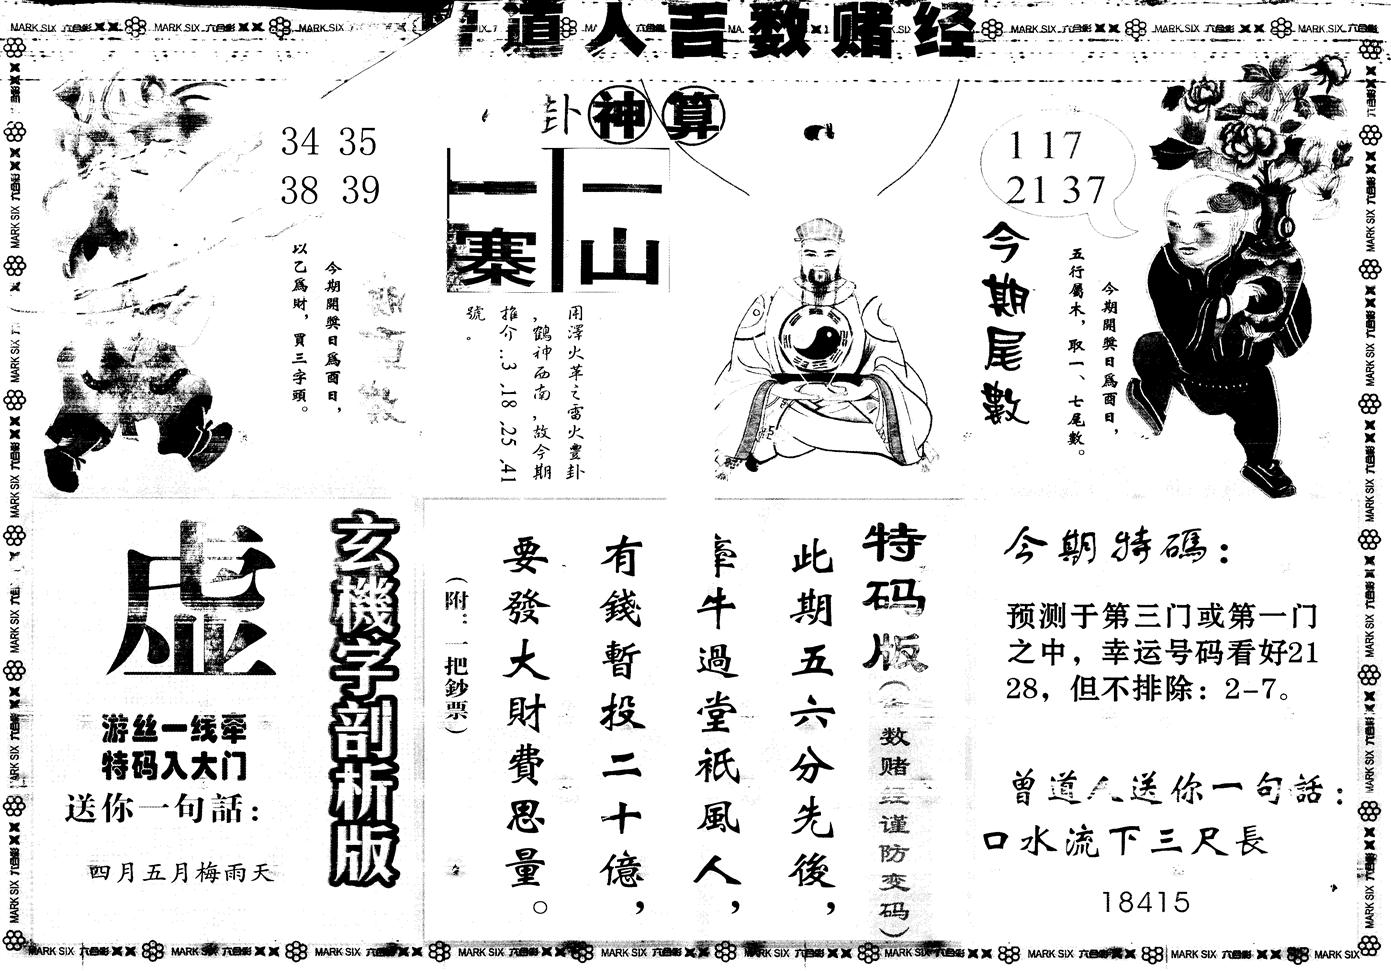 道人吉数赌经
卦神算
34 35
38 39
今期開獎日爲酉日，
以乙爲財，買三字頭。
一山
一寨
用澤火革之雷火豐卦
，鶴神西南，故今期
推介..3 .18 .25 .41
號。
1 17
21 37
今期尾數
今期開獎日爲酉日，
五行屬木，取一、七尾數。
玄機字剖析版
虚
游丝一线牵
特码入大门
送你一句話：
四月五月梅雨天
特码版
数赌经谨防变码）
此期五六分先後，
牽牛過堂祇風人，
有錢暫投二十億，
要發大財費思量。
（附：一把鈔票）
今期特碼：
预测于第三门或第一门
之中，幸运号码看好21
28，但不排除：2-7。
曾道人送你一句話：
口水流下三尺長
18415
MARK SIX 六合彩